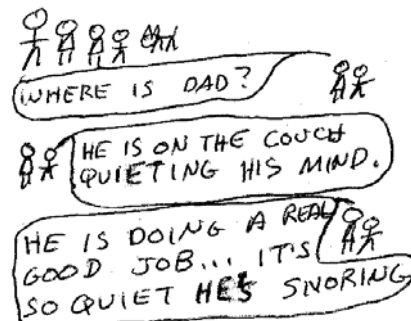 WHERE IS DAD?
HE IS ON THE COUCH
QUIETING HIS MIND.
HE IS DOING A REAL
GOOD JOB... IT'S
SO QUIET HE'S SNORING